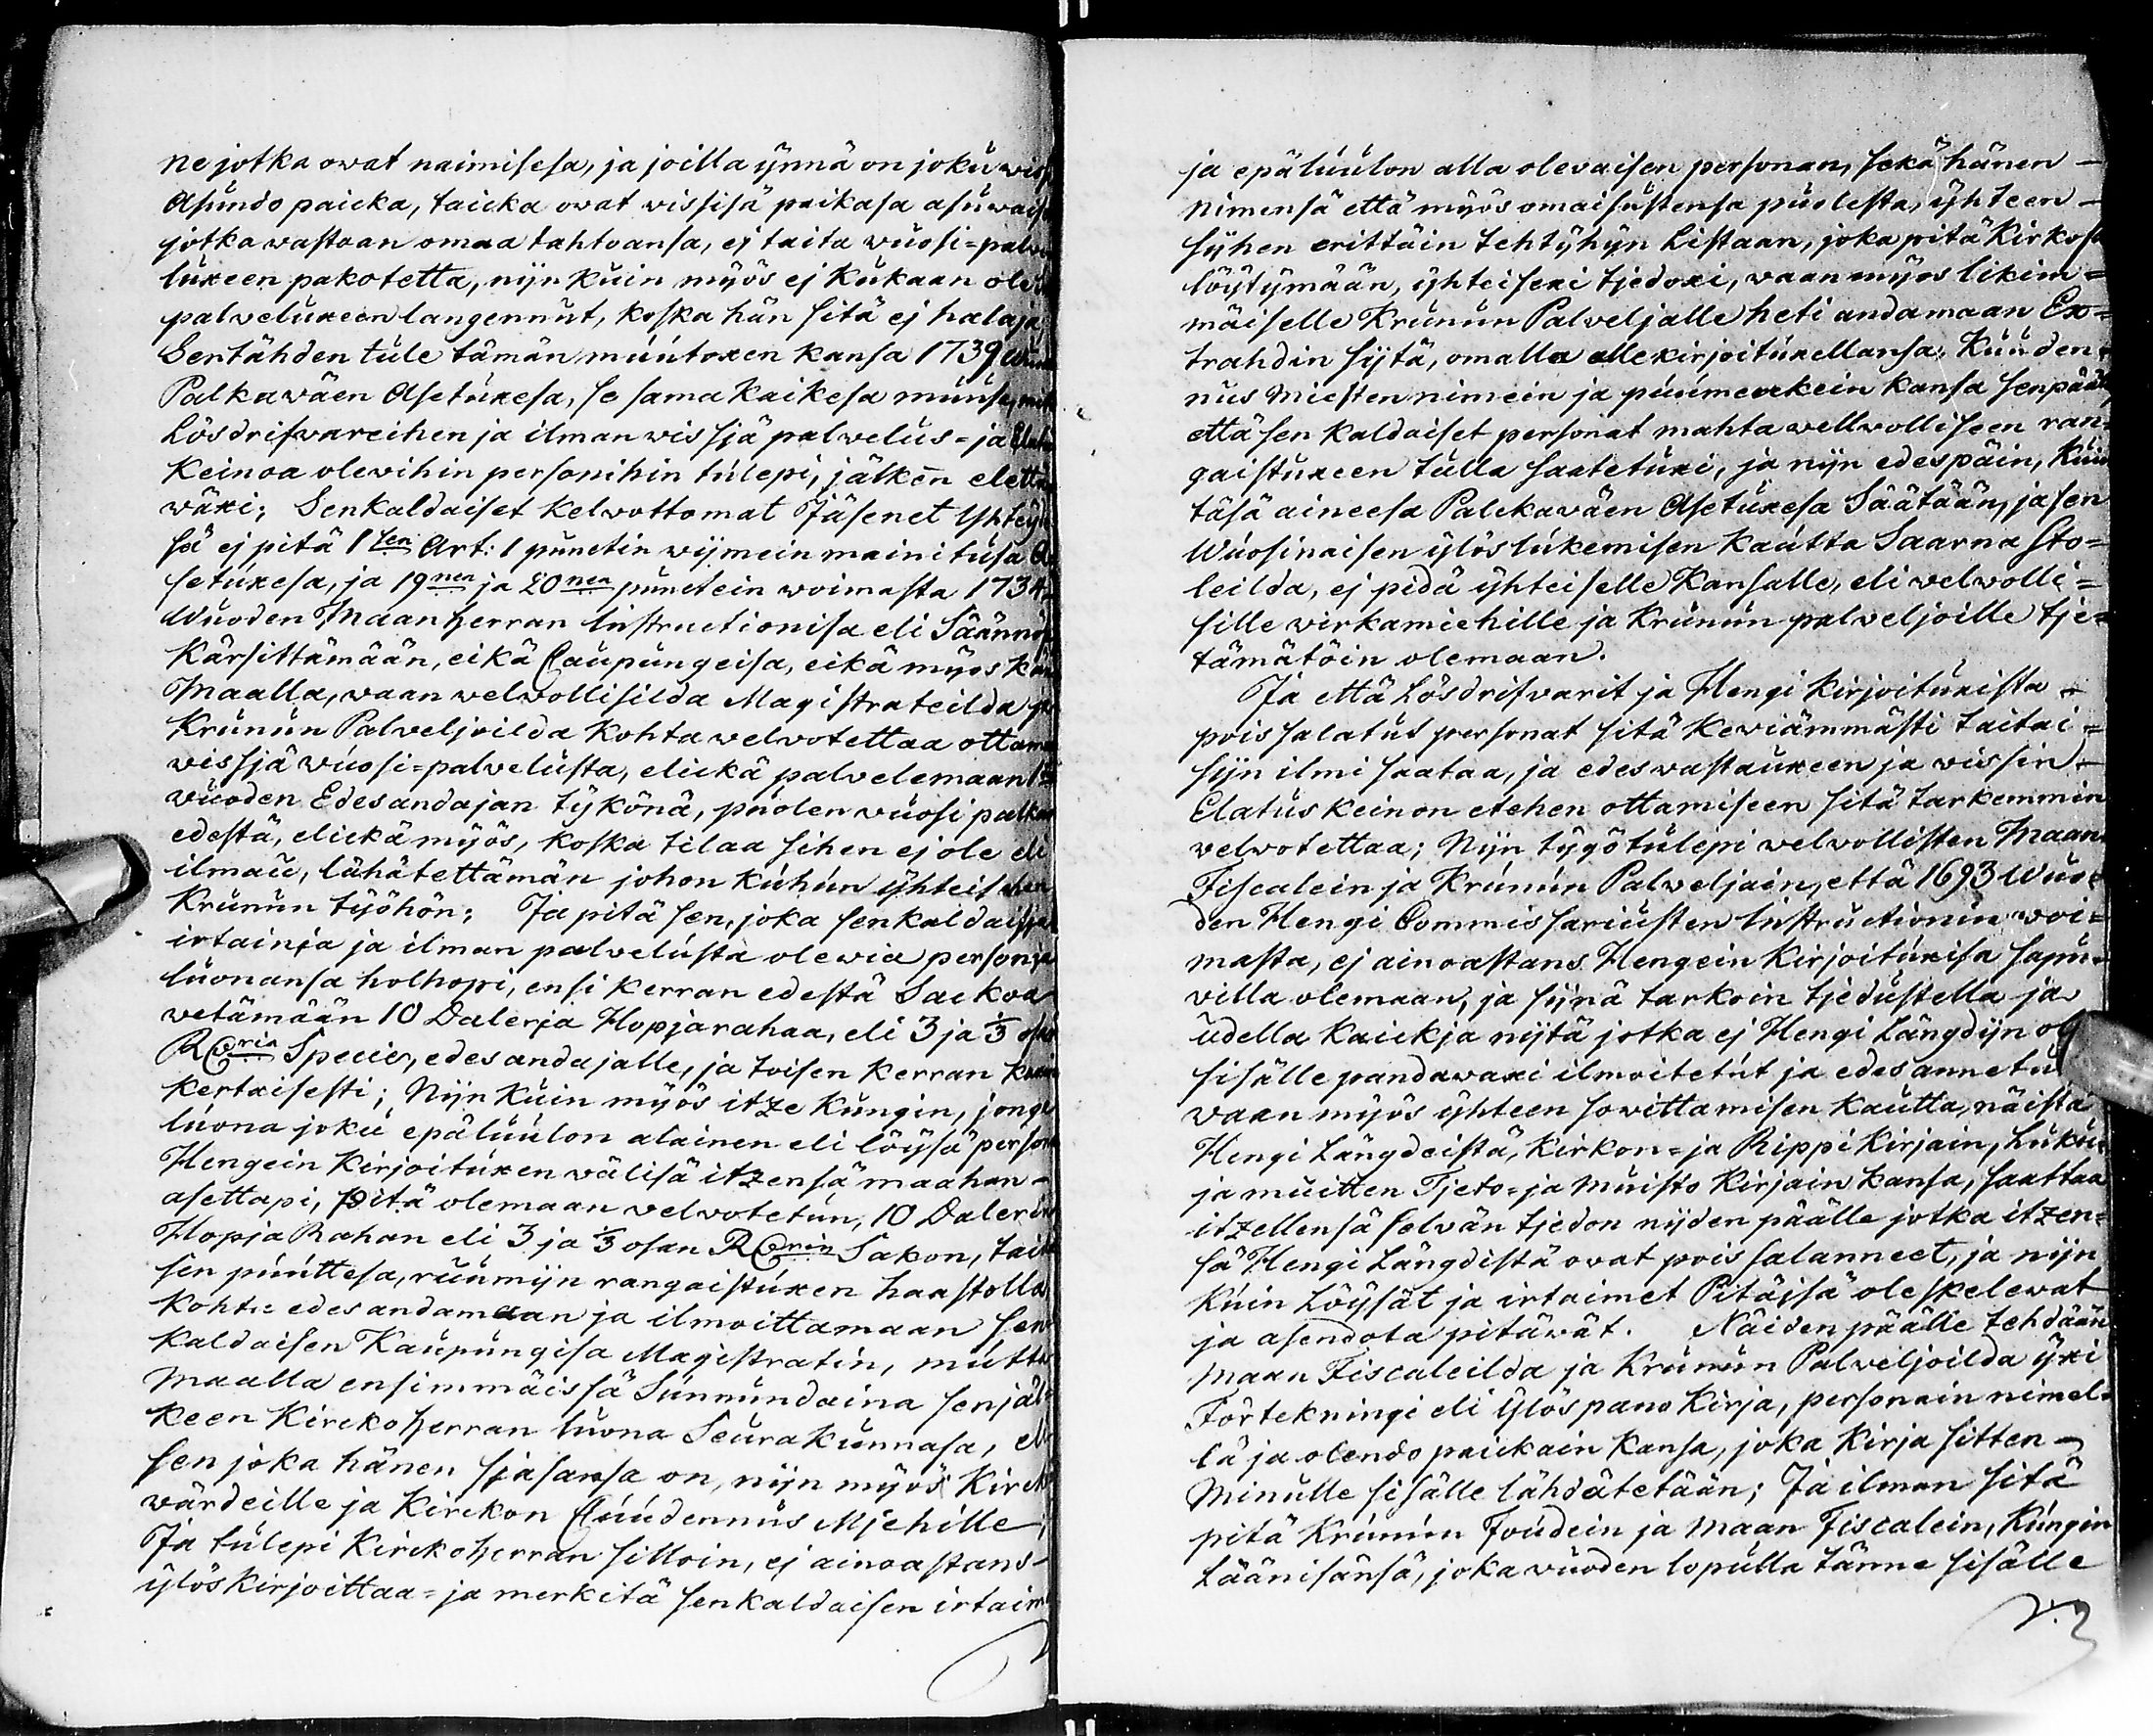 ne jotka owat naimisesa, ja joilla ynnä on joku
Asundo paicka, taicka ovat vissisä paikasa
jotka vastaan omaa tahtoansa, ej taita wuosi=
luxeen pakotetta, nijn kuin myös ej kukaan
palveluxeen langennut, koska hän sitä ej
Sentähden tule tämän muutoxen kansa 1739
Palkawäen Asetuxesa, se sama kaikesa muusa,
Lösdrifvareihen ja ilman wissiä palvelus= ja
Keinoa olevihin personihin tulepi, jälken
växi; Senkaldaiset kelvottomat Jäsenet
sä ej pitä 1sen Art: 1 punctin wijmein mainitusa
setuxesa, ja 19nen ja 20nen punctein woimasta 1734
Wuoden Maanherran Instructionisa eli
Kärsittämään, eikä Caupungeisa, eikä myös
Maalla, waan velvollisilda Magistrateilda
Krunun Palveljoilda kohta velvotettaa
vissiä wuosi=palvelusta, elickä palvelemaan
wuoden Edesandajan tykönä, puolen vuosi
edestä, elickä myös, koska tilaa sihen ej ole
ilmau, lähätettämän johon kuhun
Krunun työhön; Ja pitä sen, joka
irtainia ja ilman palvelusta olewia
luonansa holhopi, ensi kerran edestä Sackoa
vetämään 10 Dalerja Hopjarahaa, eli 3 ja 1/3
Specie, edesandajalle, ja toisen kerran
kertaisesti; Nijn kuin myös itze kungin,
luona joku epäluulon alainen eli löysä
Hengein Kirjoituxen välisä itzensä maahan -
asettapi, pitä olemaan velvotetun, 10
Hopja Rahan eli 3 ja 1/3 osan Sakon,
sen puuttesa, ruumijn rangaistuxen haastolla
Kohta edesandamaan ja ilmoittamaan sen
Kaldaisen Kaupungisa Magistratin, mutta
Maalla ensimmäissä Sunnundaina senjäl=
keen Kirckoherran luona Seurakunnasa,
sen joka hänen siasansa on, nijn myös
wärdeille ja Kirckon Cuudennus Miehille;
Ja tulepi Kirckoherran silloin, ej ainoastans -
ylöskirjoittaa= ja merkitä senkaldaisen
ja epäluulon alla olevaisen personan, sekä hänen -
Nimensä että myös omaisustensa puolesta, yhteen -
syhen erittäin tehtyhyn Listaan, joka pitä
löytymään, yhteisexi tjedoxi, waan myös likim=
mäiselle Krunun Palveljalle heti andamaan Ex=
trahdin sijtä, omalla allekirjoituxellansa, Kuuden=
nus Miesten nimein ja puumerckein kansa
että sen kaldaiset personat mahta wellvolliseen ran=
gaistuxeen tulla saatetuxi, ja nijn edespäin,
täsä aineesa Palckaväen Asetuxesa Säätään, ja sen
Wuosinaisen ylöslukemisen kautta Saarna sto=
leilda, ej pidä yhteiselle Kansalle, eli velvolli=
sille virkamiehille ja Krunun palveljoille tje=
tämätöin olemaan.
Ja että Lösdrifvarit ja Hengi kirjoituxista -
pois salatut personat sitä keviämmästi taitai=
sijn ilmi saataa, ja edesvastauxeen ja vissin -
Elatus keinon etehen ottamiseen sitä tarkemmin
velvotettaa; Nijn työtulepi velvollisten Maan
Fiscalein ja Krunun Palveljain, että 1693 Wuo=
den Hengi Commissariusten Instructionin woi=
masta, ej ainoastans Hengein Kirjoituxisa sapu=
villa olemaan, ja sijnä tarkoin tjedustella ja
udella kaickja nijtä jotka ej Hengi Längdijn
sisälle pandavaxi ilmoitetut ja edes
waan myös yhteen sowittamisen kautta, näistä
Hengi Längdeistä, Kirkon= ja Rippi Kirjain,
ja muitten Tjeto= ja Muisto Kirjain kansa, saattaa
itzellensä selvän tjedon nijden päälle jotka itzen=
sä Hengi Längdistä ovat pois salanneet, ja nijn
Kuin Löysät ja irtaimet Pitäisä oleskelevat
ja asendota pitävät. Näiden päälle tehdään
Maan Fiscaleilda ja Krunun Palveljoilda yxi
Förtekningi eli ylöspano Kirja, personain nimel=
lä ja olendo paickain kansa, joka Kirja sitten -
Minulle sisälle lähdätetään; Ja ilman sitä
pitä Krunun Foudein ja Maan Fiscalein, Kungin
Läänisänsä, joka vuoden lopulla tänne sisälle